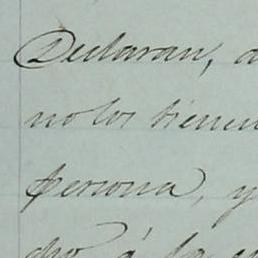 Declaran, a
no los tienen
persona, y
cho á la